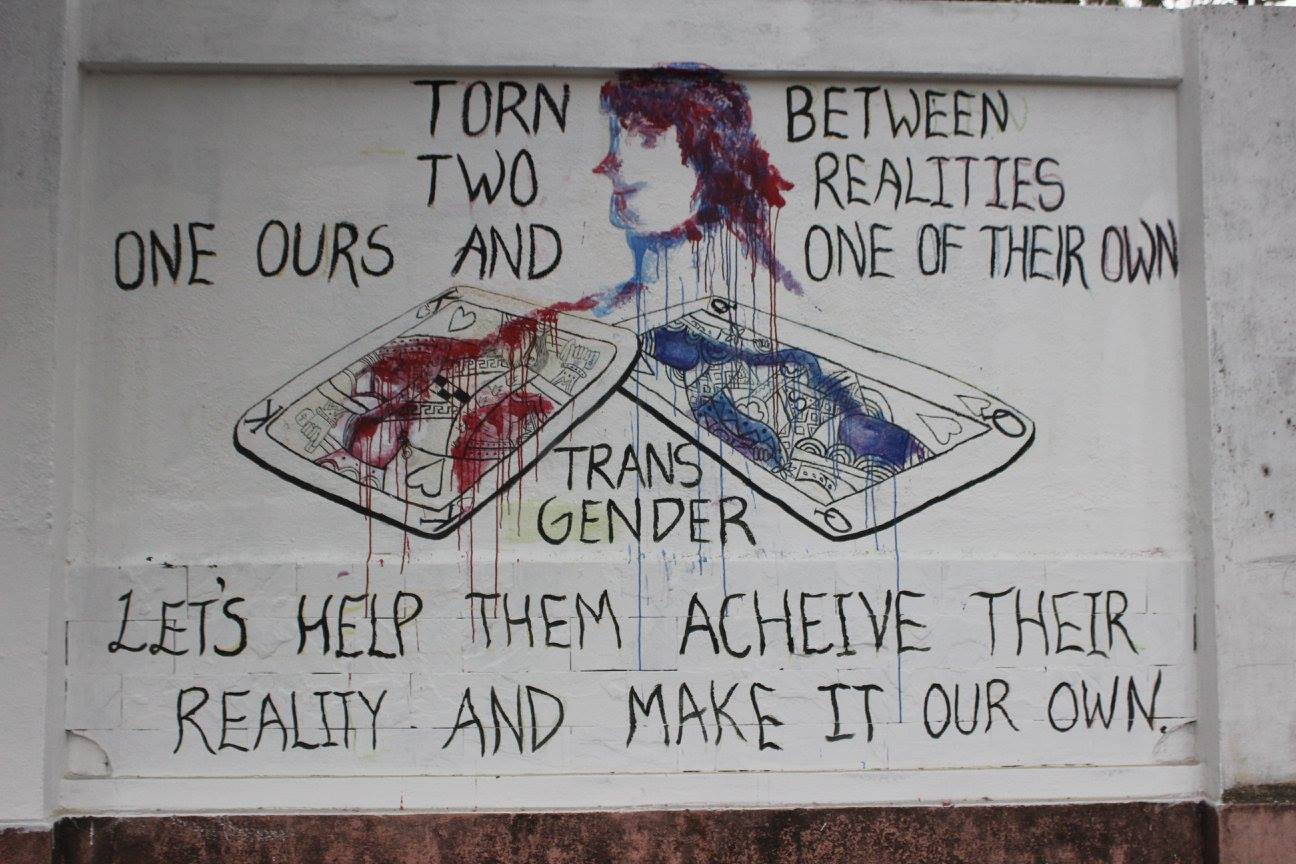 TORN BETWEEN
TWO REALITIES
ONE OURS AND ONE OF THEIR OWN
K Q
K Q
K Q
TRANS
GENDER
LET'S HELP THEM ACHEIVE THEIR
REALITY AND MAKE IT OUR OWN.